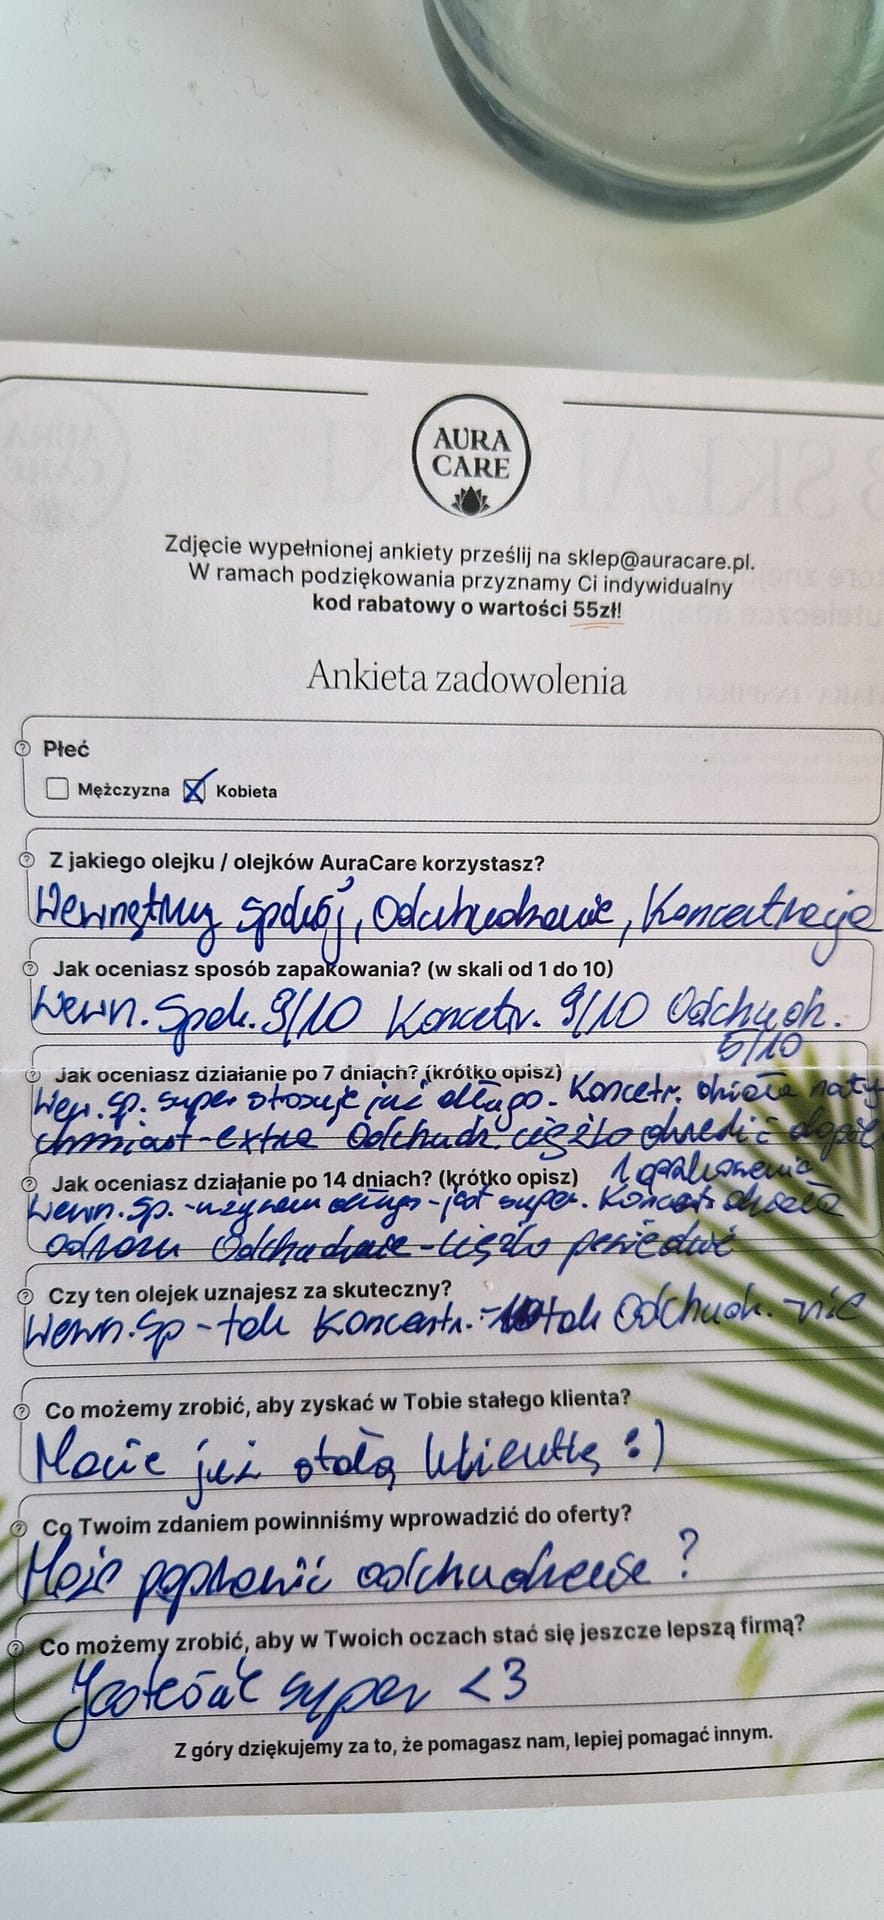 AURA
CARE
Zdjęcie wypełnionej ankiety prześlij na sklep@auracare.pl.
W ramach podziękowania przyznamy Ci indywidualny
kod rabatowy o wartości 55zł!
Ankieta zadowolenia
Płeć
Mężczyzna Kobieta
Z jakiego olejku / olejków AuraCare korzystasz?
Wewnętrzny spokój, Odchudzanie, Koncentracja
Jak oceniasz sposób zapakowania? (w skali od 1 do 10)
Wewn. Spok. 9/10 Koncetr. 9/10 Odchudz.
6/10
Jak oceniasz działanie po 7 dniach? (krótko opisz)
Wew. sp. super stosuję już długo. Koncetr. działa naty
chmiast - extra Odchudz. ciężko określić dopiero
1 opakowanie
Jak oceniasz działanie po 14 dniach? (krótko opisz)
Wewn. Sp. - używam długo - jest super. Koncent. działa
odrazu Odchudzanie - ciężko powiedzieć
Czy ten olejek uznajesz za skuteczny?
Wewn. Sp - tak Koncentr. - tak Odchudz. - nie
Co możemy zrobić, aby zyskać w Tobie stałego klienta?
Macie już stałą klientkę :)
Co Twoim zdaniem powinniśmy wprowadzić do oferty?
Może poprawić odchudzanie ?
Co możemy zrobić, aby w Twoich oczach stać się jeszcze lepszą firmą?
Jesteście super <3
Z góry dziękujemy za to, że pomagasz nam, lepiej pomagać innym.